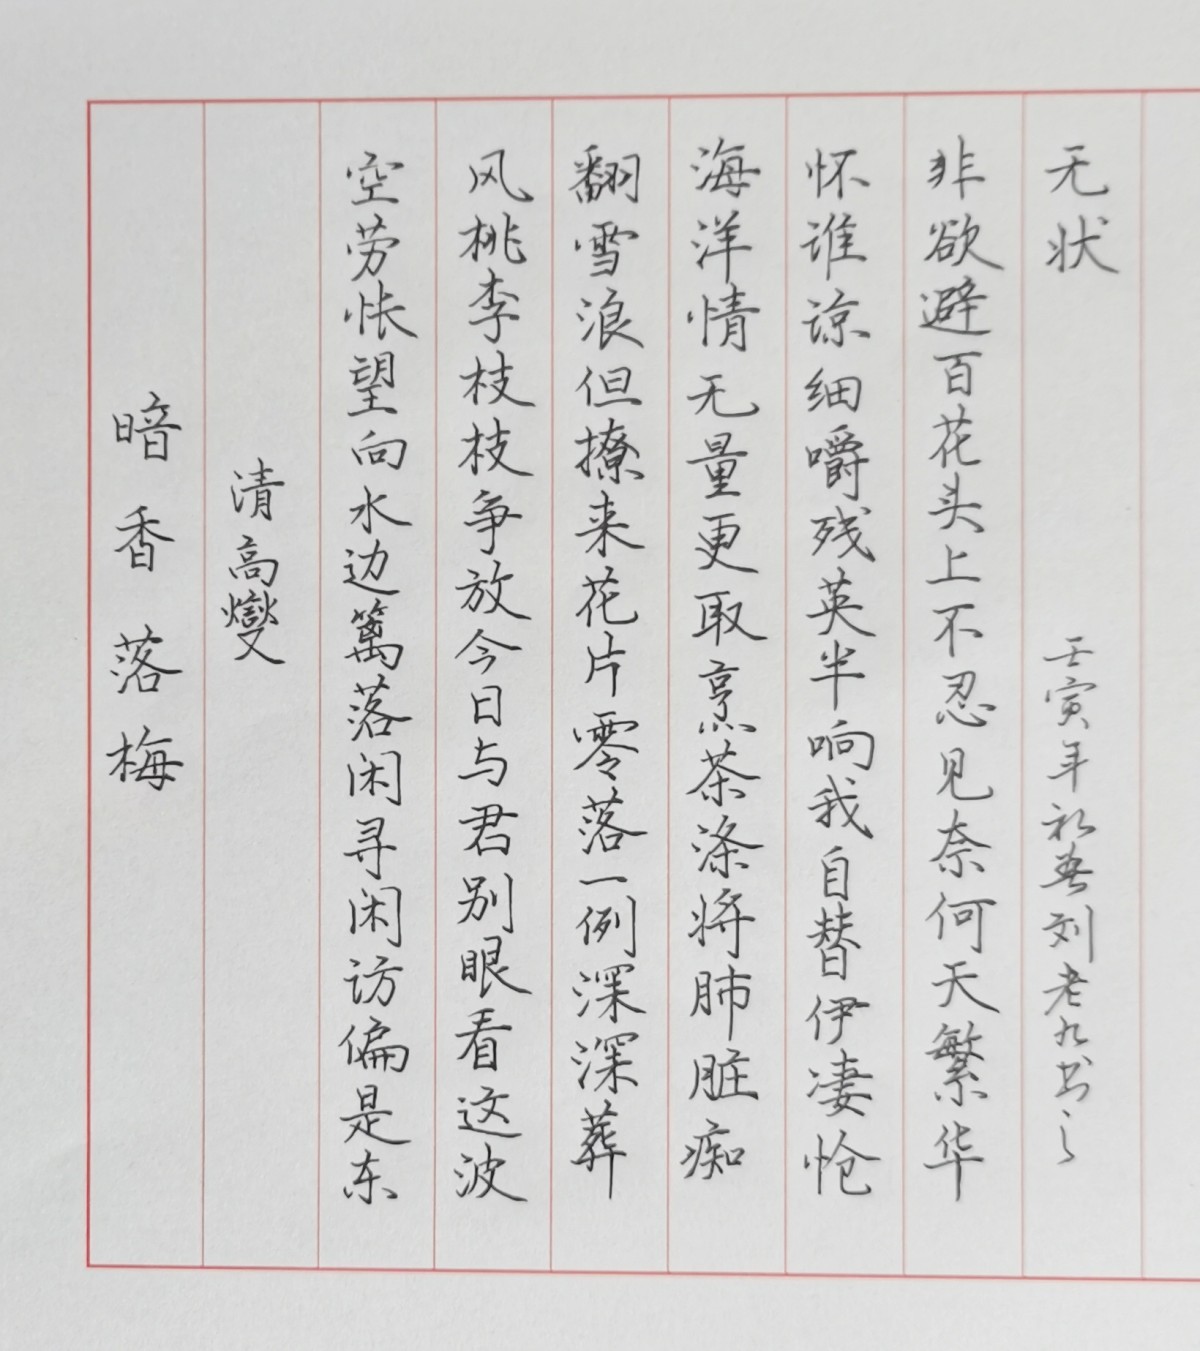 暗香落梅
清高燮
空劳怅望向水边篱落闲寻闲访偏是东
风桃李枝枝争放今日与君别眼看这波
翻雪浪但撩来花片零落一例深深葬
海洋情无量更取烹茶涤将肺脏痴
怀谁谅细嚼残英半响我自替伊凄怆
非欲避百花头上不忍见奈何天繁华
无状
壬寅年初春刘老九书之